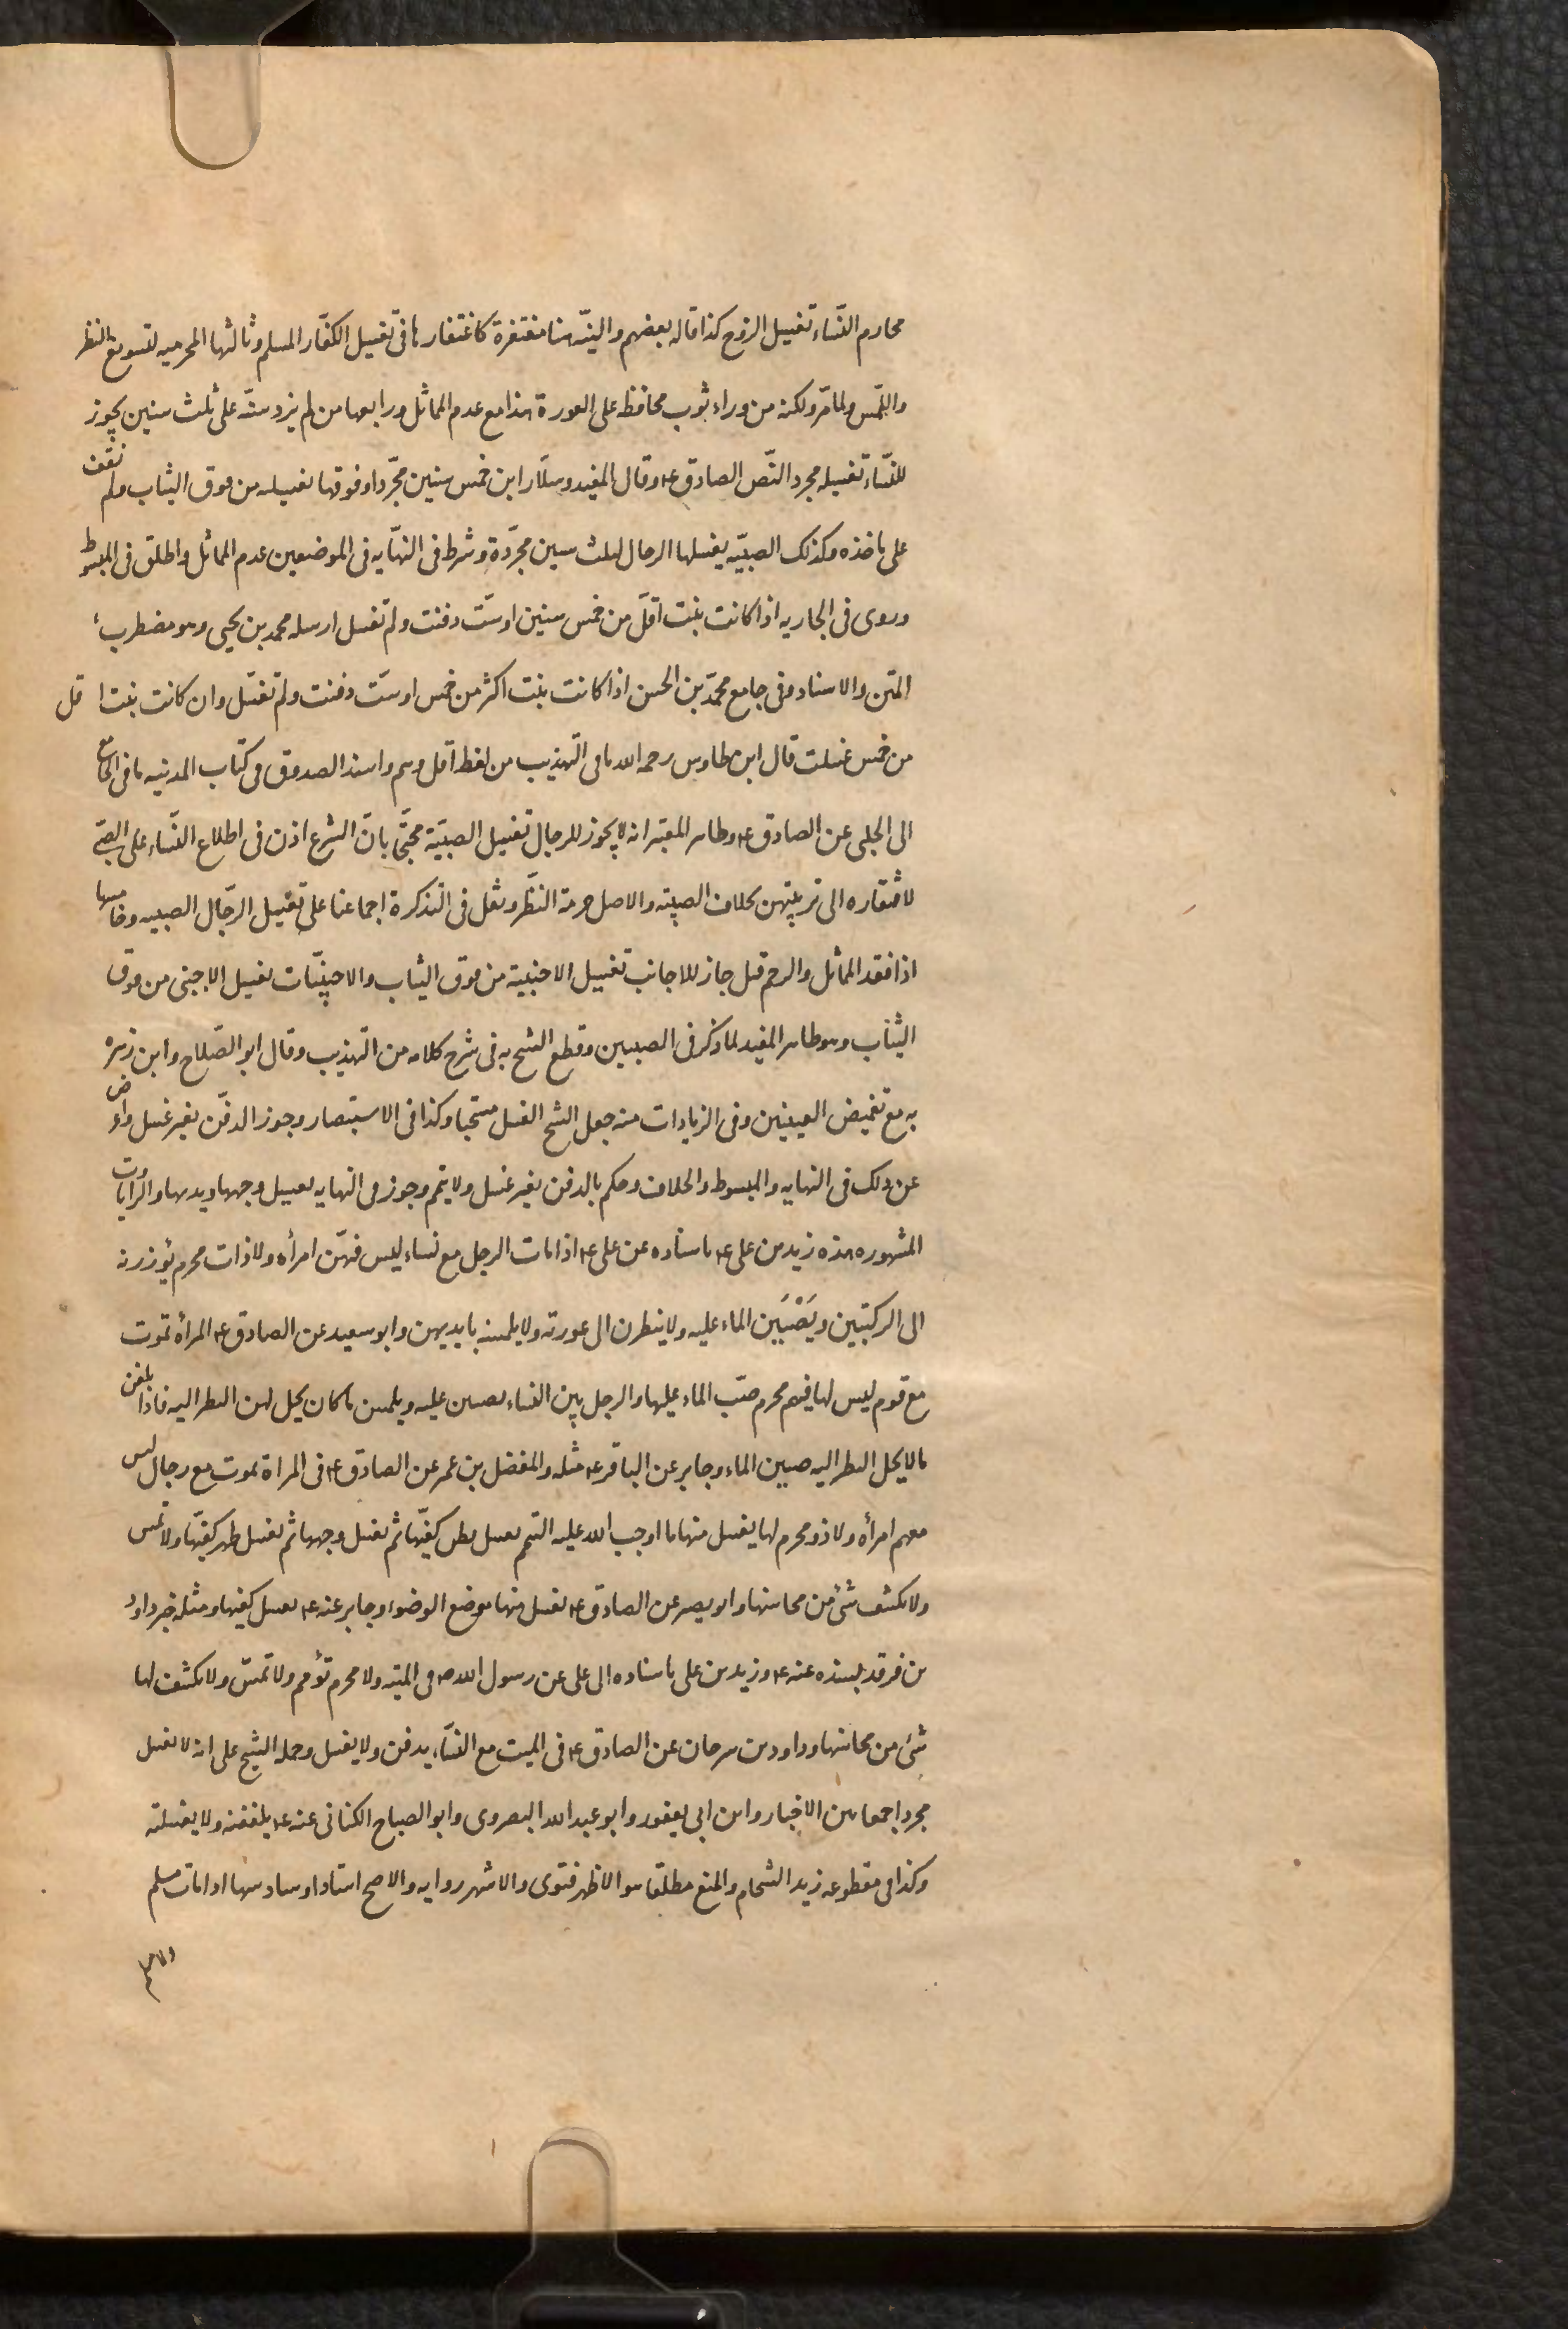 محارم النساء تغسيل الزوج كذا قاله بعضهم والنية هنا مغتفرة كاغتفارها في تغسيل الكفار المسلم وثالثها المحرميه لتسويغ النظر
واللمس ولما مر ولكنه من وراء ثوب محافظه على العورة هذا مع عدم المماثل ورابعها من لم يزد سنه على ثلث سنين يجوز
للنساء تغسيله مجرد النص الصادق ع وقال المفيد وسلار ابن خمس سنين مجردا وفوقها تغسيله من فوق الثياب ولم نقف
على ماخذه وكذلك الصبيه يغسلها الرجال لثلث سنين مجردة وشرط في النهايه في الموضعين عدم المماثل واطلق في المبسوط
وروى في الجاريه اذا كانت بنت اقل من خمس سنين او ست دفنت ولم تغسل ارسله محمد بن يحيى وهو مضطرب
المتن والاسناد وفي جامع محمد بن الحسن اذا كانت بنت اكثر من خمس او ست دفنت ولم تغسل وان كانت بنت اقل
من خمس غسلت قال ابن طاوس رحمه الله ما في التهذيب من لفظ اقل وهم واسند الصدوق في كتاب المدينه ما في الجامع
الى الحلبي عن الصادق ع وظاهر المعتبر انه لا يجوز للرجال تغسيل الصبية محتجا بان الشرع اذن في اطلاع النساء على الصبي
لافتقاره الى تربيتهن بخلاف الصبيه والاصل حرمة النظر ونقل في التذكرة اجماعنا على تغسيل الرجال الصبيه وخامسها
اذا فقد المماثل والرحم قيل جاز للاجانب تغسيل الاجنبية من فوق الثياب والاجنبيات تغسيل الاجنبي من فوق
الثياب وهو ظاهر المفيد لما ذكر في الصبيين وقطع الشيخ به في شرح كلامه من التهذيب وقال ابو الصلاح وابن زهره
به مع تغميض العينين وفي الزيادات منه جعل الشيخ الغسل مستحبا وكذا في الاستبصار وجوز الدفن بغير غسل واعرض
عن ذلك في النهايه والمبسوط والخلاف وحكم بالدفن بغير غسل ولا تيمم وجوز في النهايه تغسيل وجهها ويديها والروايات
المشهوره هذه زيد بن على ع باسناده عن على ع اذا مات الرجل مع نساء ليس فيهن امرأه ولا ذات محرم يؤزرنه
الى الركبتين ويَصْبَبن الماء عليه ولا ينظرن الى عورته ولا يلمسنه بايديهن وابو سعيد عن الصادق ع المرأه تموت
مع قوم ليس لها فيهم محرم صب الماء عليها والرجل بين النساء يصببن عليه ويلمسن ما كان يحل لهن النظر اليه فاذا بلغن
ما لا يحل النظر اليه صببن الماء وجابر عن الباقر ع مثله والمفضل بن عمر عن الصادق ع في المراة تموت مع رجال ليس
معهم امرأه ولا ذو محرم لها يغسل منها ما اوجب الله عليه التيمم يغسل بطن كفيها ثم يغسل وجهها ثم يغسل ظهر كفيها ولا تمس
ولا يكشف شئ من محاسنها وابو بصير عن الصادق ع يغسل منها موضع الوضوء وجابر عنه ع يغسل كفيها ومثله خبر داود
بن فرقد بسنده عنه ع وزيد بن على باسناده الى على عن رسول الله ص في الميته ولا محرم تؤمم ولا تمس ولا يكشف لها
شئ من محاسنها وداود بن سرحان عن الصادق ع في الميت مع النساء يدفن ولا يغسل وحمله الشيخ على انه لا يغسل
مجردا جمعا بين الاخبار وابن ابي يعفور وابو عبد الله البصروى وابو الصباح الكناني عنه ع يلففنه ولا يغسلنه
وكذا في مقطوعه زيد الشحام والمنع مطلقا هو الاظهر فتوى والاشهر روايه والاصح اسنادا وسادسها اذا مات مسلم